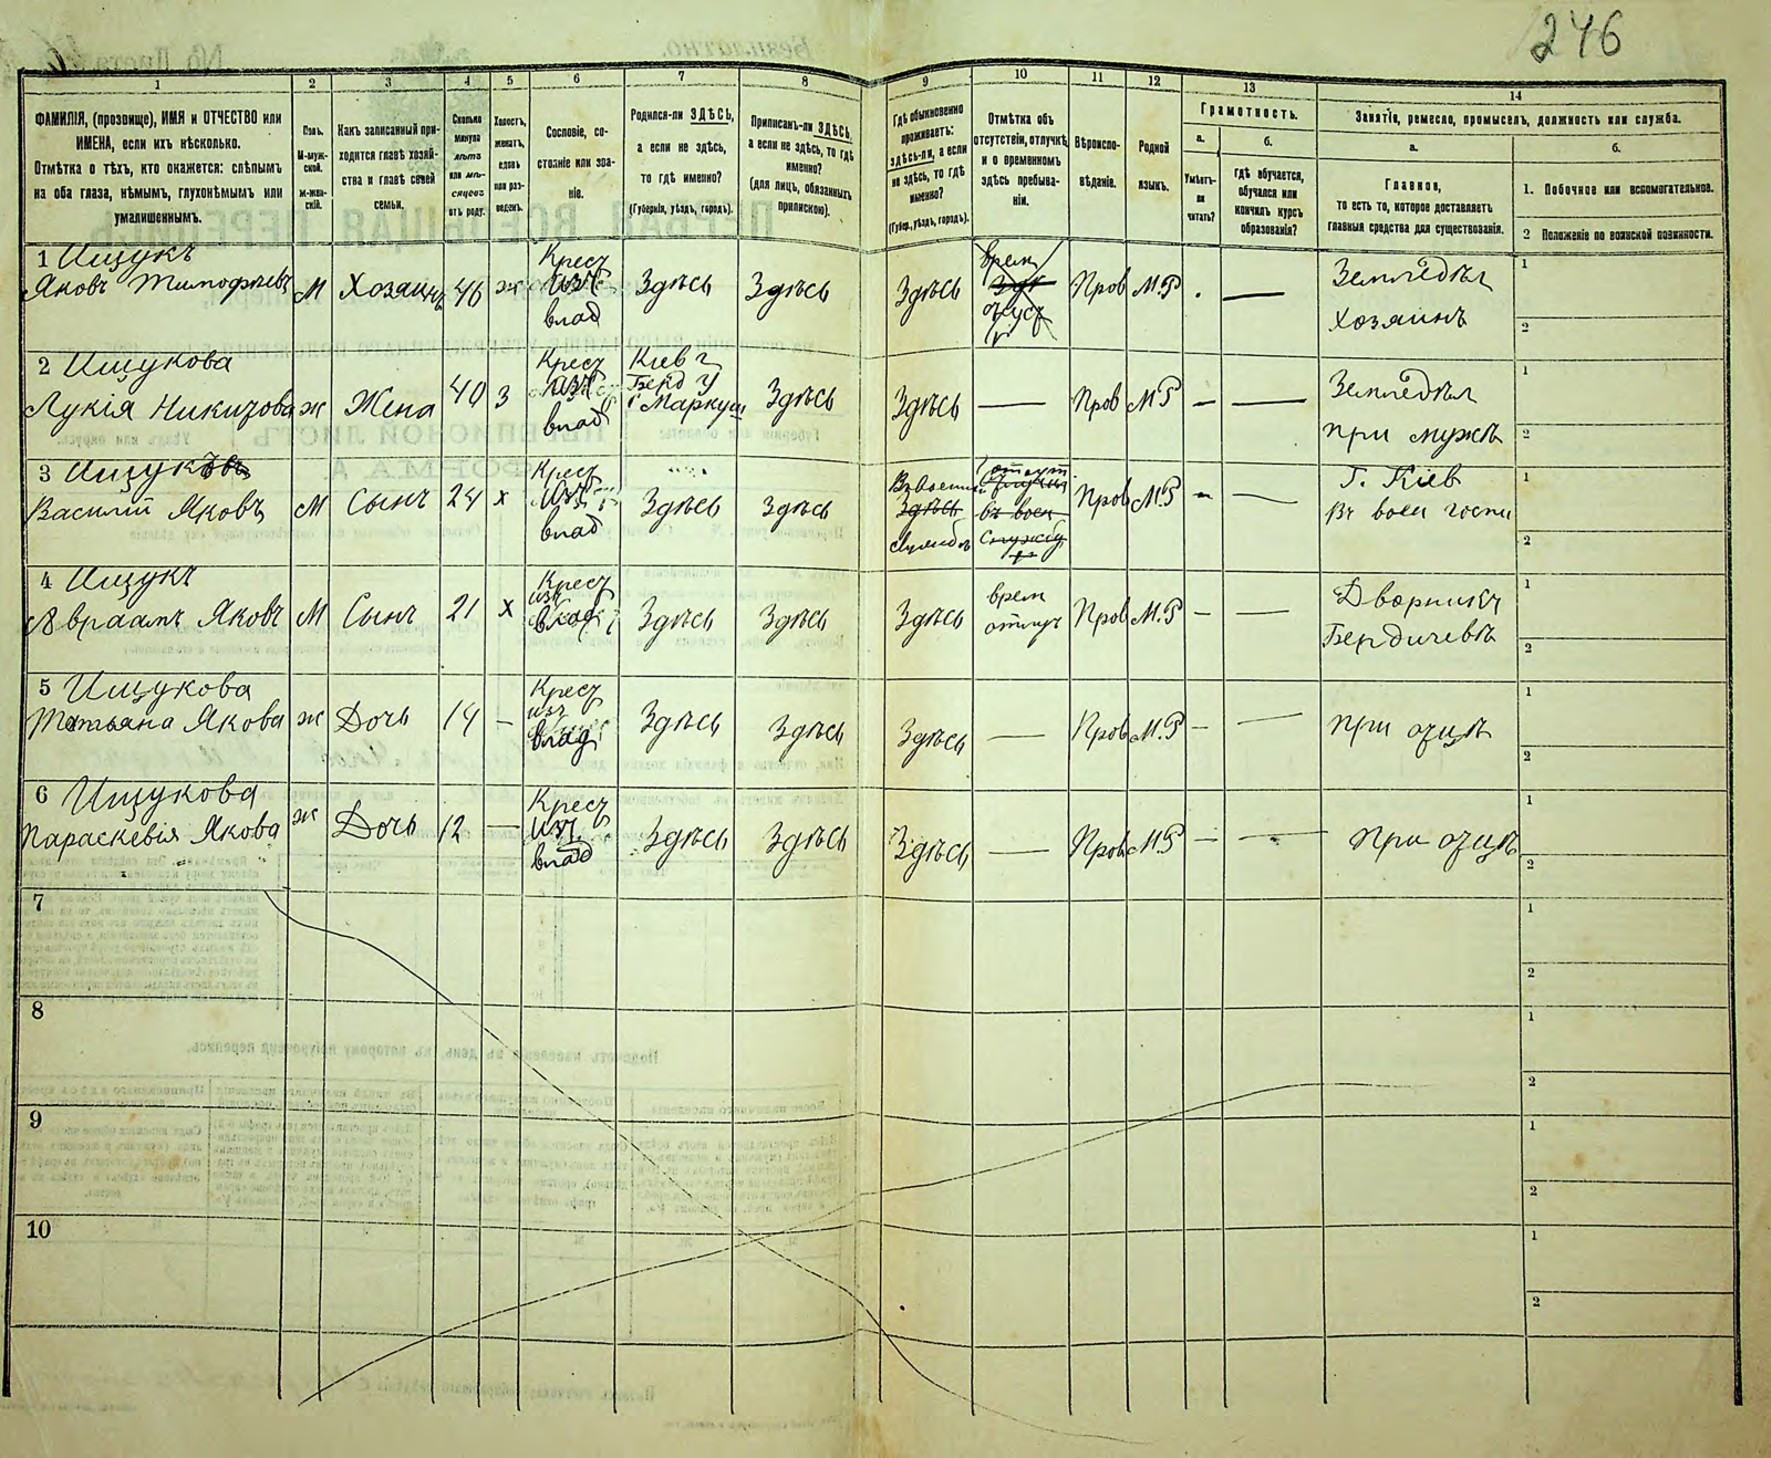 246
1
2
3
4
5
6
7
8
9
10
11
12
13
14
ФАМИЛІЯ, (прозвище), ИМЯ и ОТЧЕСТВО или
ИМЕНА, если ихъ нѣсколько.
Отмѣтка о тѣхъ, кто окажется: слѣпымъ
на оба глаза, нѣмымъ, глухонѣмымъ или
умалишеннымъ.
Полъ.
М-муж-
ской.
ж-жен-
скій.
Какъ записанный при-
ходится главѣ хозяй-
ства и главѣ своей
семьи.
Сколько
минуло
лѣтъ
или мѣ-
сяцевъ
отъ роду.
Холостъ,
женатъ,
вдовъ
или раз-
веденъ.
Сословіе, со-
стояніе или зва-
ніе.
Родился-ли ЗДѢСЬ,
а если не здѣсь,
то гдѣ именно?
(Губернія, уѣздъ, городъ).
Приписанъ-ли ЗДѢСЬ,
а если не здѣсь, то гдѣ
именно?
(для лицъ, обязанныхъ
припискою).
Гдѣ обыкновенно
проживаетъ:
здѣсь-ли, а если
не здѣсь, то гдѣ
именно?
(Губер., уѣздъ, городъ).
Отмѣтка объ
отсутствіи, отлучкѣ
и о временномъ
здѣсь пребыва-
ніи.
Вѣроиспо-
вѣданіе.
Родной
языкъ.
Грамотность.
а.
Умѣетъ-
ли
читать?
б.
гдѣ обучается,
обучался или
кончилъ курсъ
образованія?
Занятіе, ремесло, промыселъ, должность или служба.
а.
Главное,
то есть то, которое доставляетъ
главныя средства для существованія.
б.
1. Побочное или вспомогательное.
2 Положеніе по воинской повинности.
1 Ищукъ
Яковъ Тимофѣевъ
М
Хозяинъ
46
ж
Крест
изъ
влад
Здѣсь
Здѣсь
Здѣсь
врем
отсут
Прав
М.Р
.
—
Земледѣл
хозяинъ
1
2
2 Ищукова
Лукія Никитова
ж
Жена
40
З
Крест
изъ
влад
Кіев г
Берд у
Здѣсь
Здѣсь
—
Прав
М.Р
—
—
Земледѣл
при мужѣ
1
2
3 Ищукъ
Василій Яковъ
М
Сынъ
24
х
Крест
изъ
влад
Здѣсь
Здѣсь
Въ военной
Здѣсь
службѣ
въ воен
службу
Прав
М.Р
—
—
Г. Кіев
Въ воен госпи
1
2
4 Ищукъ
Авраамъ Яковъ
М
Сынъ
21
х
Крест
изъ
влад
Здѣсь
Здѣсь
Здѣсь
врем
отлуч
Прав
М.Р
—
—
Дворникъ
Бердичевѣ
1
2
5 Ищукова
Татьяна Якова
ж
Дочь
14
—
Крест
изъ
влад
Здѣсь
Здѣсь
Здѣсь
—
Прав
М.Р
—
—
при отцѣ
1
2
6 Ищукова
Параскевія Якова
ж
Дочь
12
—
Крест
изъ
влад
Здѣсь
Здѣсь
Здѣсь
—
Прав
М.Р
—
—
при отцѣ
1
2
7
1
2
8
1
2
9
1
2
10
1
2